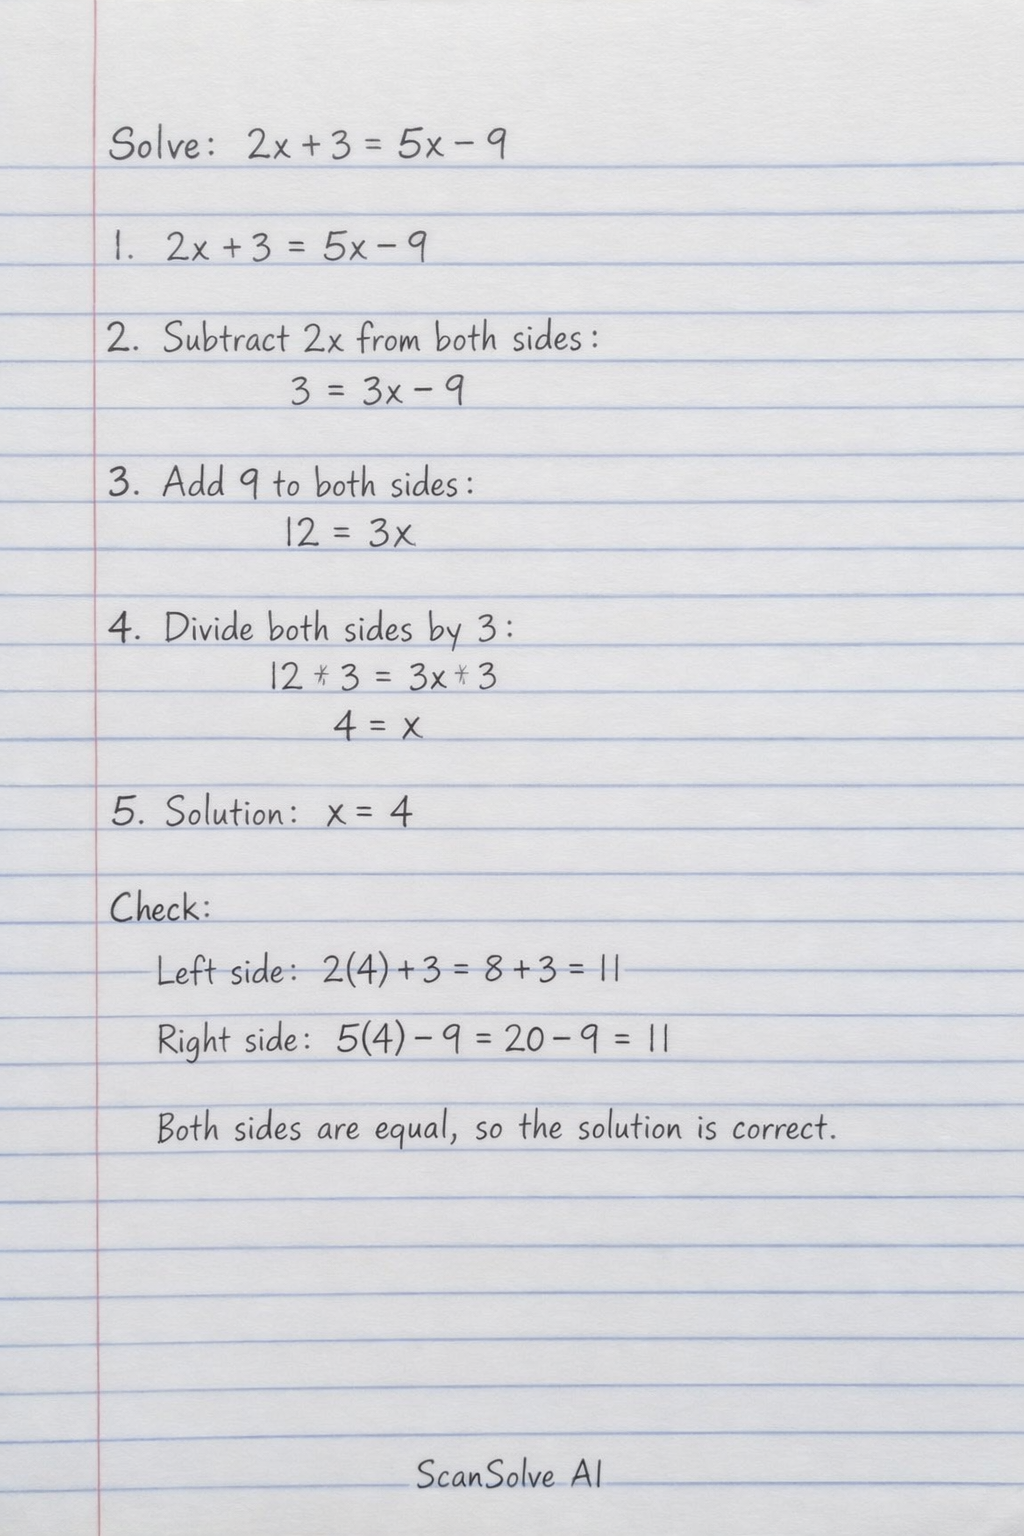 Solve: 2x + 3 = 5x - 9
1. 2x + 3 = 5x - 9
2. Subtract 2x from both sides:
3 = 3x - 9
3. Add 9 to both sides:
12 = 3x
4. Divide both sides by 3:
12 * 3 = 3x * 3
4 = x
5. Solution: x = 4
Check:
Left side: 2(4) + 3 = 8 + 3 = 11
Right side: 5(4) - 9 = 20 - 9 = 11
Both sides are equal, so the solution is correct.
ScanSolve AI